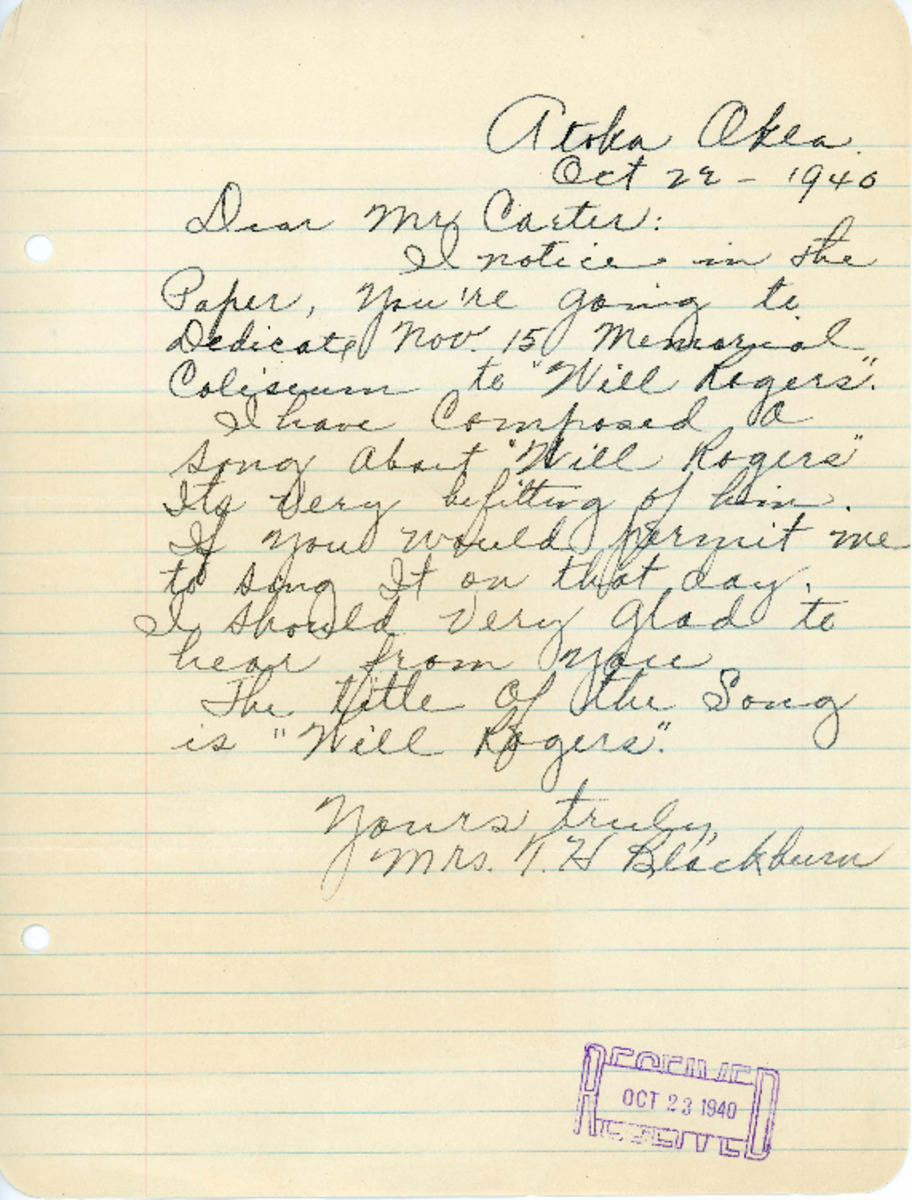 Atoka Okla.
Oct 22 - 1940
Dear Mr Carter:
I notice in the
Paper, You're going to
Dedicate Nov. 15 Memorial
Coliseum to "Will Rogers".
I have Composed a
song About "Will Rogers"
Its Very befitting of him.
If you would permit me
to sing It on that day.
I should Very glad to
hear from you
The title of the Song
is "Will Rogers".
Yours truly,
Mrs. T. H Blackburn
RECEIVED
OCT 23 1940
RECEIVED